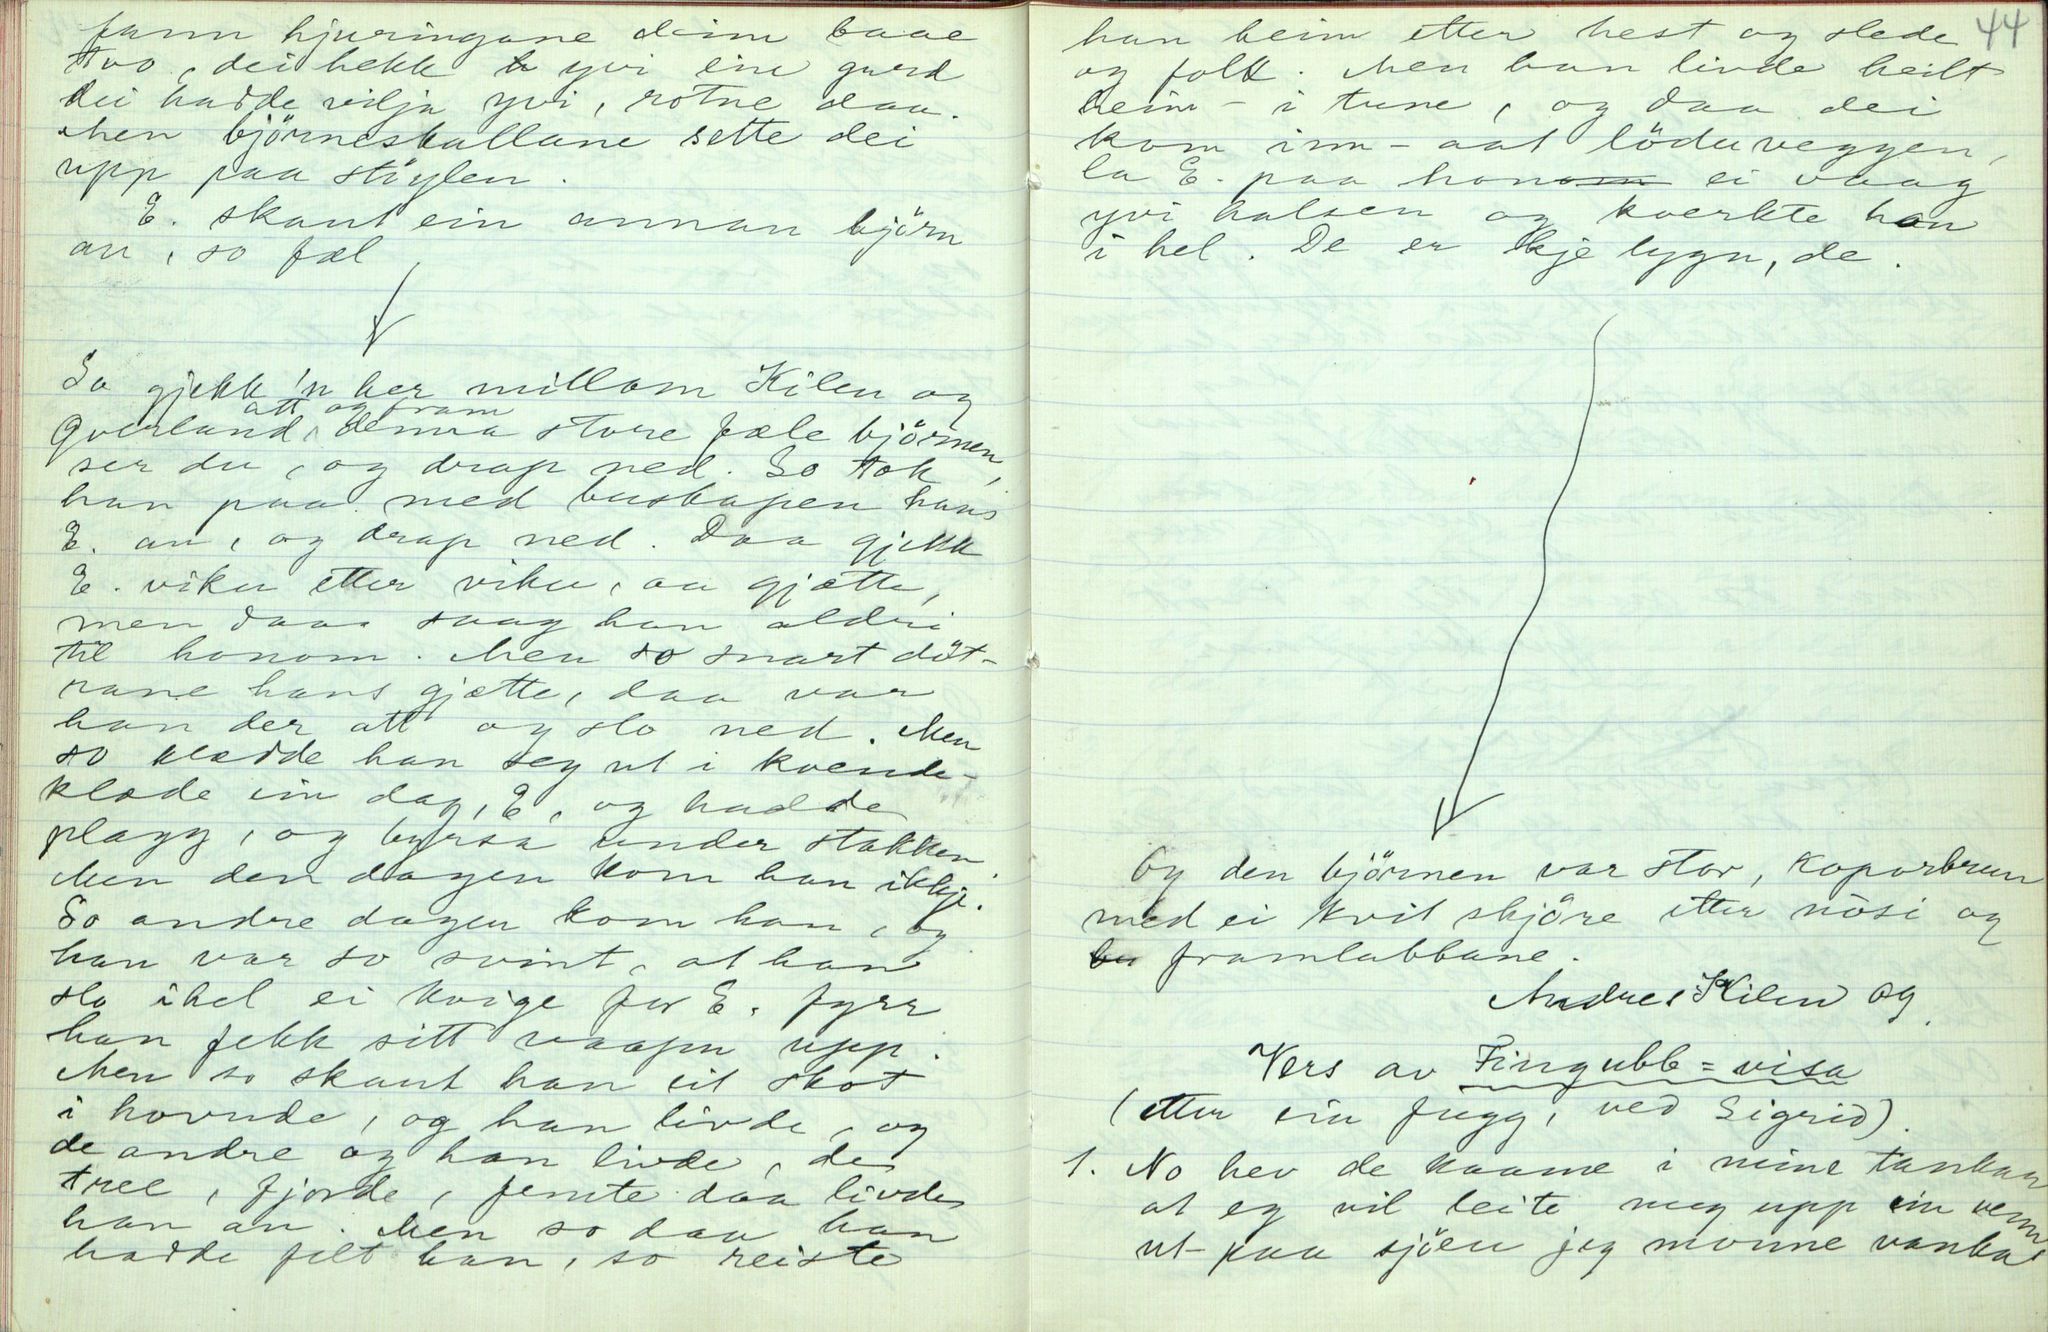 fann hjuringane deim baae
tvo, dei hekk yvi ein gard
dei hadde vilja yvi, rotne daa.
Men björneskallane sette dei
upp paa stöylen.
E. skaut ein annan björn
au, so fæl
So gjekk 'n her millom Kilen og
att og fram
Qverland, denna store fæle björnen,
ser du, og drap ned. So tok
han paa med buskapen hans
E. au, og drap ned. Daa gjekk
E. viku etter viku, au gjætte,
men daa saag han aldri
til honom. Men so snart döt-
rane hans gjætte, daa var
han der att og slo ned. Men
so klædde han seg ut i kvende-
klæde ein dag, E, og hadde
plagg, og byrsa under stakken.
Men den dagen kom han ikkje.
So andre dagen kom han, og
han var so svint, at han
slo ihel ei kvige for E. fyrr
han fekk sitt vaapn upp.
Men so skaut han eit skot
i hovude, og han livde, og
de andre og han livde, de
tree, fjorde, femte daa livde
han au. Men so daa han
hadde felt han, so reiste
44
han heim etter hest og slede
og folk. Men han livde heilt
heim - i tune, og daa dei
kom inn - aat löduveggen,
la E. paa honom ei vaag
yvi halsen og kverkte han
i hel. De er kje lygn, de.
Og den björnen var stor, koparbrun
med ei kvit skjöre etter nösi og
framlabbane.
Andres Kilen og
Vers av Fingubb = visa
(etter ein fugg, ved Sigrid)
1. No hev de kaame i mine tankar
at eg vil leite meg upp ein venn
ut - paa sjöen jeg monne vanka